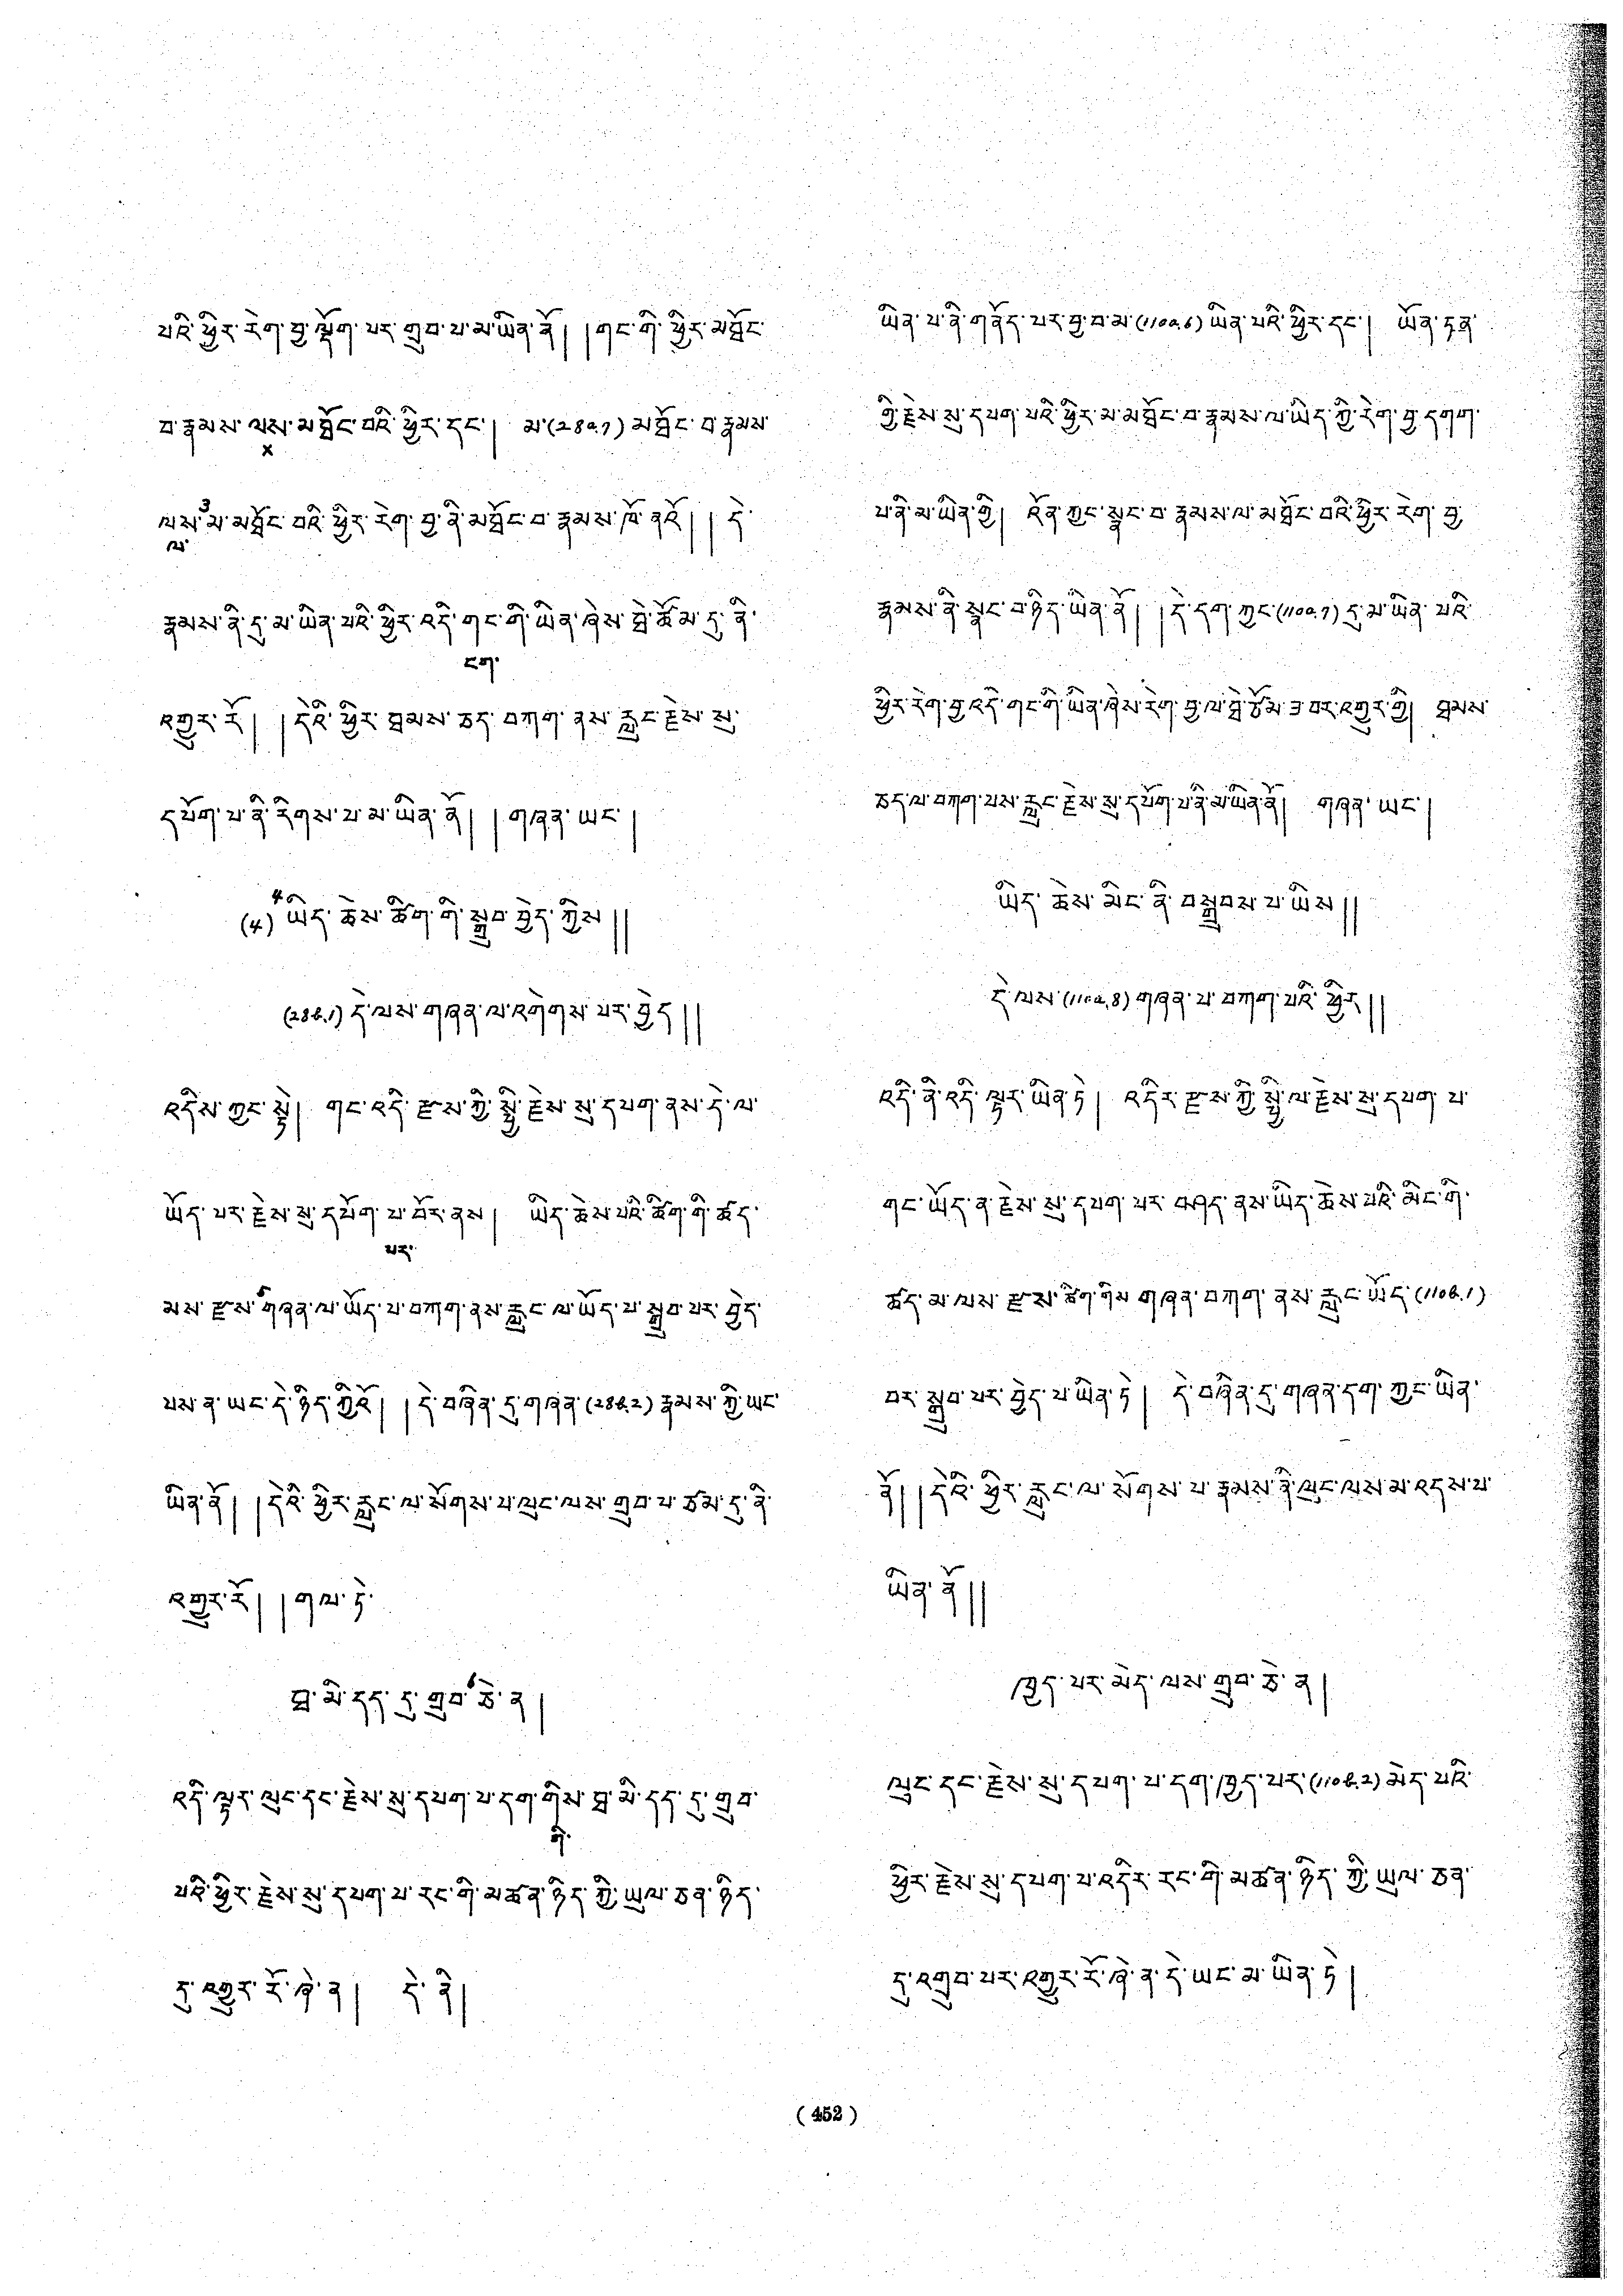 པའི་ཕྱིར་རེག་བྱ་ལྡོག་པར་གྲུབ་པ་མ་ཡིན་ནོ། །གང་གི་ཕྱིར་མཐོང་
བ་རྣམས་ལས་མཐོང་བའི་ཕྱིར་དང་། མ་(28a.7)མཐོང་བ་རྣམས་
x
ལས་3མ་མཐོང་བའི་ཕྱིར་རེག་བྱ་ནི་མཐོང་བ་རྣམས་ཁོ་ནའོ། །དེ་
ལ་
རྣམས་ནི་དུ་མ་ཡིན་པའི་ཕྱིར་འདི་གང་གི་ཡིན་ཞེས་ཐེ་ཚོམ་དུ་ནི་
ངག་
འགྱུར་རོ། །དེའི་ཕྱིར་ཐམས་ཅད་བཀག་ནས་རླུང་རྗེས་སུ་
དཔོག་པ་ནི་རིགས་པ་མ་ཡིན་ནོ། །གཞན་ཡང་།
(4) 4ཡིད་ཆེས་ཚིག་གི་སྒྲུབ་བྱེད་ཀྱིས༎
(28b.1)དེ་ལས་གཞན་ལ་འགེགས་པར་བྱེད༎
འདིས་ཀྱང་སྟེ། གང་འདི་རྫས་ཀྱི་སྤྱི་རྗེས་སུ་དཔག་ནས་དེ་ལ་
ཡོད་པར་རྗེས་སུ་དཔོག་པ་བོར་ནས། ཡིད་ཆེས་པའི་ཚིག་གི་ཚད་
པར་
མས་རྫས་5གཞན་ལ་ཡོད་པ་བཀག་ནས་རླུང་ལ་ཡོད་པ་སྒྲུབ་པར་བྱེད་
པས་ན་ཡང་དེ་ཉིད་ཀྱིའོ། །དེ་བཞིན་དུ་གཞན་(28b.2)རྣམས་ཀྱི་ཡང་
ཡིན་ནོ། །དེའི་ཕྱིར་རླུང་ལ་སོགས་པ་ལུང་ལས་གྲུབ་པ་ཙམ་དུ་ནི་
འགྱུར་རོ། །གལ་ཏེ་
ཐ་མི་དད་དུ་གྲུབ་6ཅེ་ན།
འདི་ལྟར་ལུང་དང་རྗེས་སུ་དཔག་པ་དག་གིས་ཐ་མི་དད་དུ་གྲུབ་
གི་
པའི་ཕྱིར་རྗེས་སུ་དཔག་པ་རང་གི་མཚན་ཉིད་ཀྱི་ཡུལ་ཅན་ཉིད་
དུ་འགྱུར་རོ་ཞེ་ན། དེ་ནི།
ཡིན་པ་ནི་གནོད་པར་བྱ་བ་མ་(110a.6)ཡིན་པའི་ཕྱིར་དང་། ཡོན་ཏན་
གྱི་རྗེས་སུ་དཔག་པའི་ཕྱིར་མ་མཐོང་བ་རྣམས་ལ་ཡིད་ཀྱི་རེག་བྱ་དགག་
པ་ནི་མ་ཡིན་གྱི། འོན་ཀྱང་སྣང་བ་རྣམས་ལ་མཐོང་བའི་ཕྱིར་རེག་བྱ་
རྣམས་ནི་སྣང་བ་ཉིད་ཡིན་ནོ། །དེ་དག་ཀྱང་(110a.7)དུ་མ་ཡིན་པའི་
ཕྱིར་རེག་བྱ་འདི་གང་གི་ཡིན་ཞེས་རེག་བྱ་ལ་ཐེ་ཙོམ་ཟ་བར་འགྱུར་གྱི། ཐམས་
ཅད་ལ་བཀག་པས་རླུང་རྗེས་སུ་དཔོག་པ་ནི་མ་ཡིན་ནོ། གཞན་ཡང་།
ཡིད་ཆེས་མིང་ནི་བསྒྲུབས་པ་ཡིས༎
དེ་ལས་(110a.8)གཞན་པ་བཀག་པའི་ཕྱིར༎
འདི་ནི་འདི་ལྟར་ཡིན་ཏེ། འདིར་རྫས་ཀྱི་སྤྱི་ལ་རྗེས་སུ་དཔག་པ་
གང་ཡོད་ན་རྗེས་སུ་དཔག་པར་བཤད་ནས་ཡིད་ཆེས་པའི་མིང་གི་
ཚད་མ་ལས་རྫས་ཚིག་གིས་གཞན་བཀག་ནས་རླུང་ཡོད་(110b.1)
བར་སྒྲུབ་པར་བྱེད་པ་ཡིན་ཏེ། དེ་བཞིན་དུ་གཞན་དག་ཀྱང་ཡིན་
ནོ། །དེའི་ཕྱིར་རླུང་ལ་སོགས་པ་རྣམས་ནི་ལུང་ལས་མ་འདས་པ་
ཡིན་ནོ༎
ཁྱད་པར་མེད་ལས་གྲུབ་ཅེ་ན།
ལུང་དང་རྗེས་སུ་དཔག་པ་དག་ཁྱད་པར་(110b.2)མེད་པའི་
ཕྱིར་རྗེས་སུ་དཔག་པ་འདིར་རང་གི་མཚན་ཉིད་ཀྱི་ཡུལ་ཅན་
དུ་འགྲུབ་པར་འགྱུར་རོ་ཞེ་ན་དེ་ཡང་མ་ཡིན་ཏེ།
( 452 )